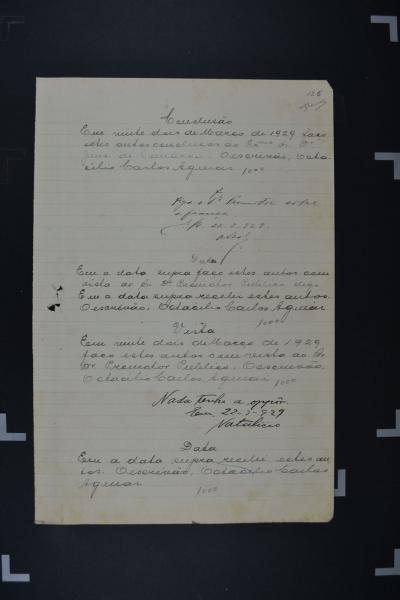 126
Conclusão
Em vinte dois de Março de 1929 faço
estes autos conclusos ao Exmo. Dr.
Juiz de O escrivão, Octa-
cilio Carlos Aguiar
1000
Dr. Promotor sobre
a fiança
22.3.929.
Data
Em a data supra faço estes autos com
vista ao Dr. Promotor Publico digo
Em a data supra recebi estes autos.
O escrivão, Octacilio Carlos Aguiar
1000
Vista
Em vinte dois de Março de 1929
faço estes autos com vista ao
Dr. Promotor Publico. O escrivão,
Octacilio Carlos Aguiar
1000
Nada tenho a oppôr.
Em, 22-3-929
Data
Em a data supra recebi estes au-
tos. O escrivão, Octacilio Carlos
Aguiar
1000